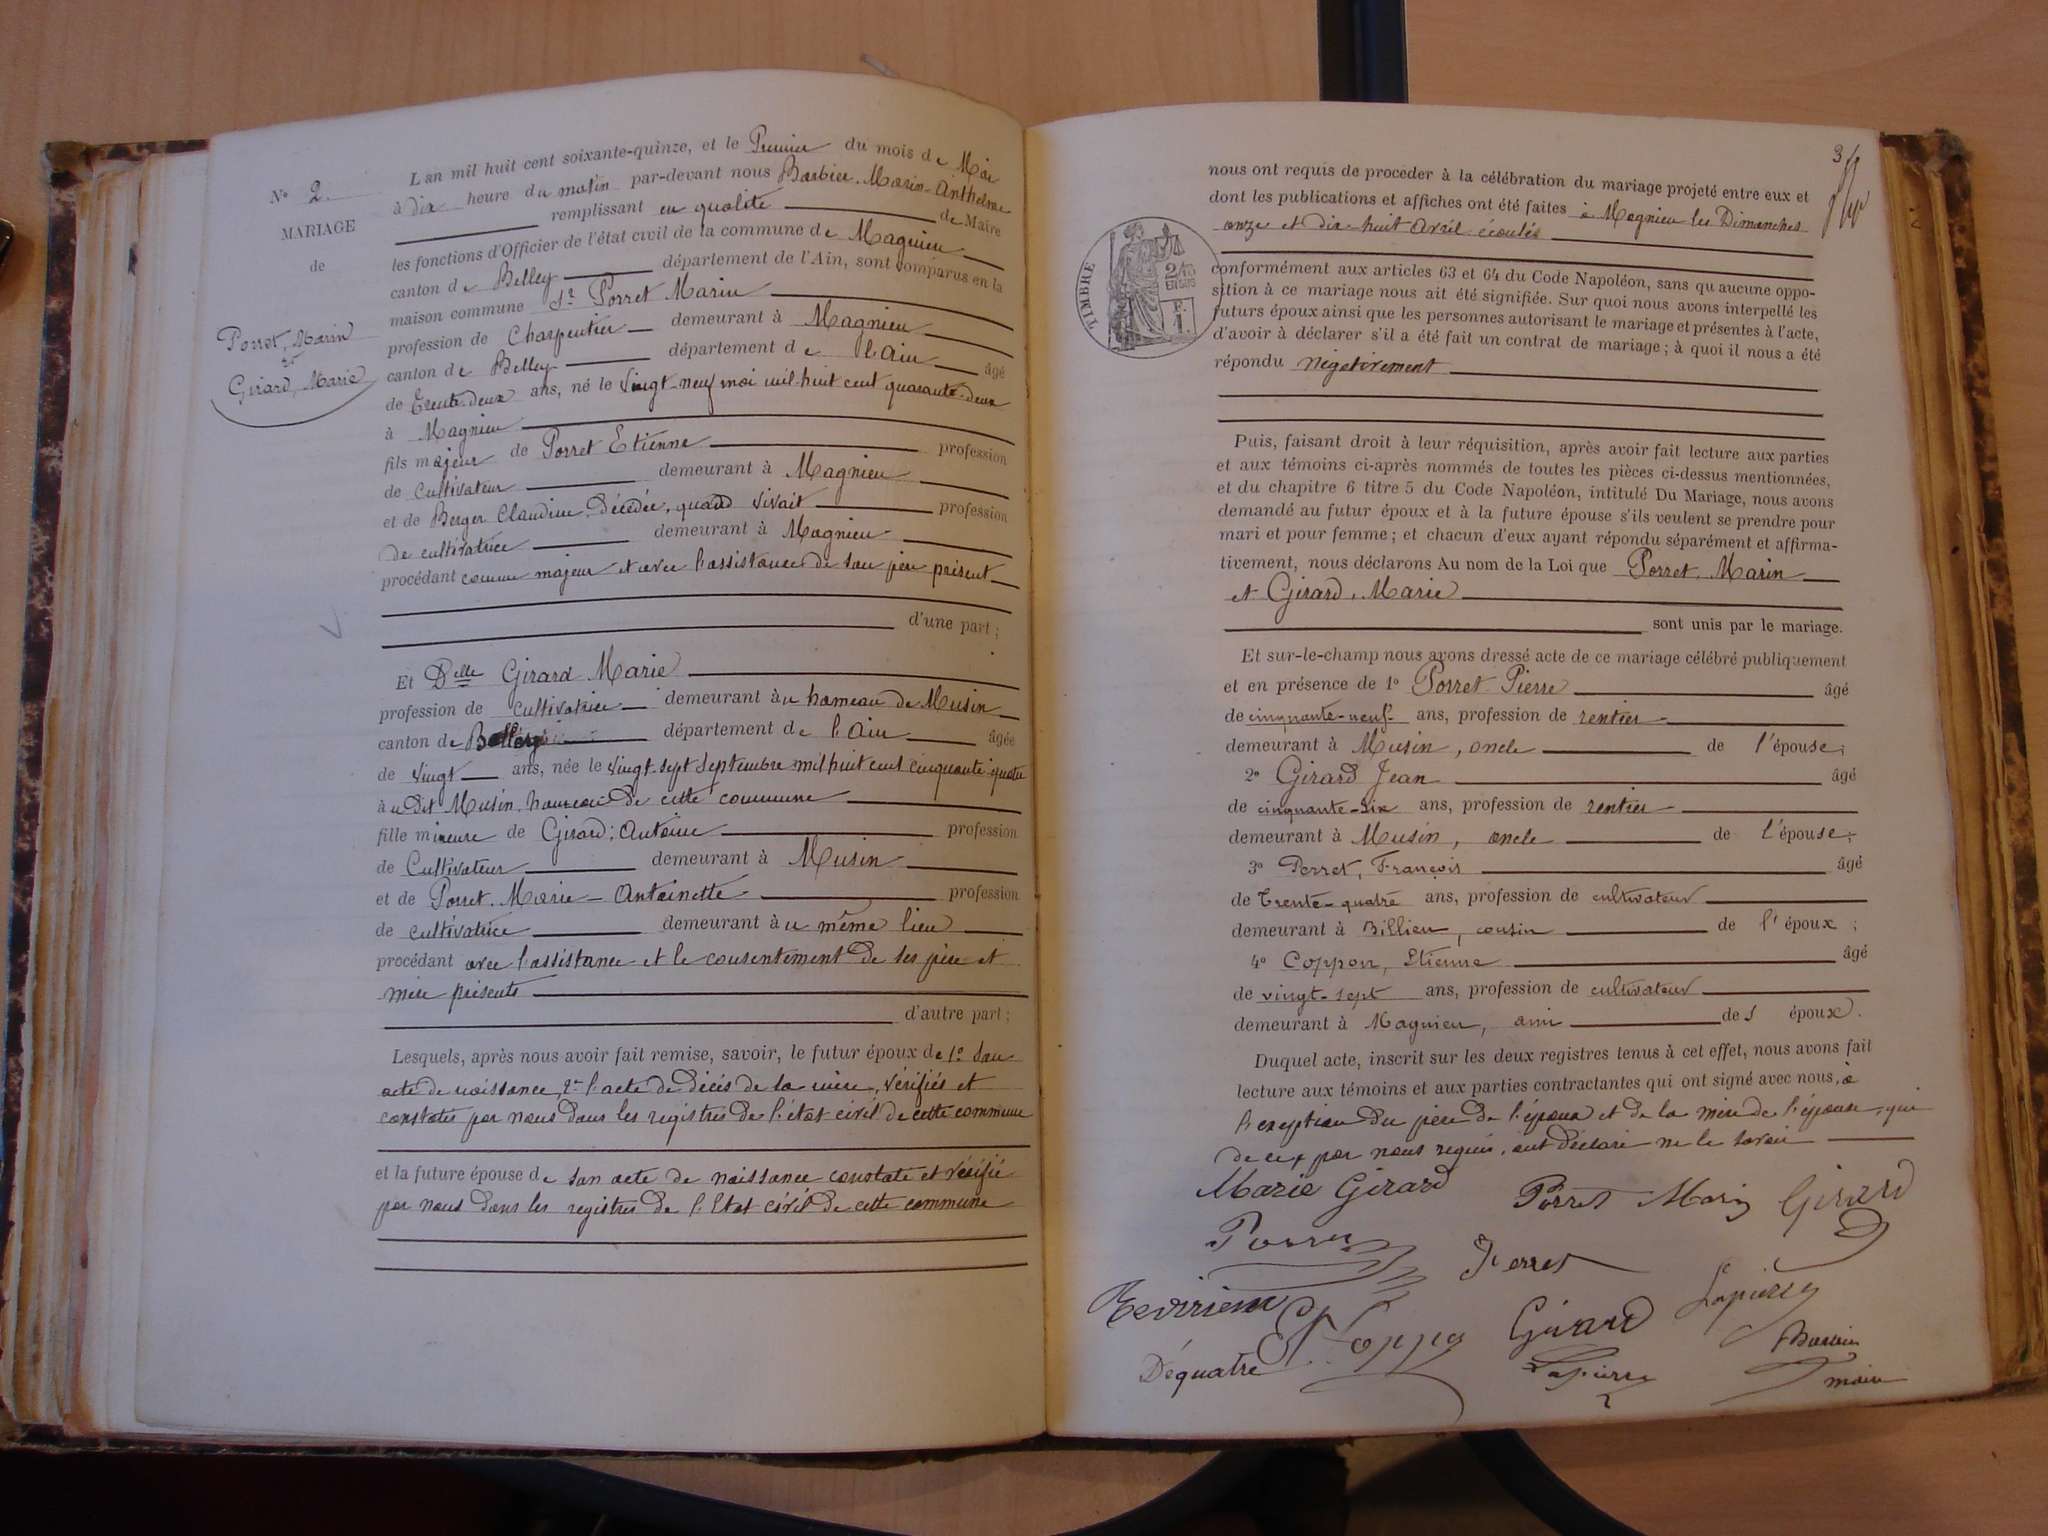 N° 2
MARIAGE
de
Porret, Marin
et
Girard, Marie
L'an mil huit cent soixante-quinze, et le Premier du mois de Mai
à dix heure du matin par-devant nous Barbier Marin-Anthelme
remplissant en qualité de Maire
les fonctions d'Officier de l'état civil de la commune de Magnieu
canton de Belley département de l'Ain, sont comparus en la
maison commune Sr Porret Marin
profession de Charpentier demeurant à Magnieu
canton de Belley département de l'Ain âgé
de trente-deux ans, né le vingt-neuf mai mil huit cent quarante-deux
à Magnieu
fils majeur de Porret Etienne profession
de cultivateur demeurant à Magnieu
et de Berger Claudine Décédée, quand vivait profession
de cultivatrice demeurant à Magnieu
procédant comme majeur et avec l'assistance de son père présent
d'une part;
Et Delle Girard Marie
profession de cultivatrice demeurant au hameau de Musin
canton de Belley département de l'Ain âgée
de vingt ans, née le vingt-sept Septembre mil huit cent cinquante quatre
au dit Musin hameau de cette commune
fille mineure de Girard, Antoine profession
de Cultivateur demeurant à Musin
et de Porret Marie-Antoinette profession
de cultivatrice demeurant au même lieu
procédant avec l'assistance et le consentement de ses père et
mère présents
d'autre part;
Lesquels, après nous avoir fait remise, savoir, le futur époux de 1° Son
acte de naissance, 2° l'acte de décès de la mère, vérifiés et
constatés par nous dans les registres de l'état civil de cette commune
et la future épouse de son acte de naissance constaté et vérifié
par nous dans les registres de l'Etat civil de cette commune
3
nous ont requis de procéder à la célébration du mariage projeté entre eux et
dont les publications et affiches ont été faites à Magnieu les Dimanches
onze et dix-huit avril écoulés
TIMBRE
2/10
EN SUS
F.
1.
conformément aux articles 63 et 64 du Code Napoléon, sans qu'aucune oppo-
sition à ce mariage nous ait été signifiée. Sur quoi nous avons interpellé les
futurs époux ainsi que les personnes autorisant le mariage et présentes à l'acte,
d'avoir à déclarer s'il a été fait un contrat de mariage; à quoi il nous a été
répondu négativement
Puis, faisant droit à leur réquisition, après avoir fait lecture aux parties
et aux témoins ci-après nommés de toutes les pièces ci-dessus mentionnées,
et du chapitre 6 titre 5 du Code Napoléon, intitulé Du Mariage, nous avons
demandé au futur époux et à la future épouse s'ils veulent se prendre pour
mari et pour femme; et chacun d'eux ayant répondu séparément et affirma-
tivement, nous déclarons Au nom de la Loi que Porret, Marin
et Girard, Marie
sont unis par le mariage.
Et sur-le-champ nous avons dressé acte de ce mariage célébré publiquement
et en présence de 1° Porret Pierre âgé
de cinquante-neuf ans, profession de rentier
demeurant à Musin, oncle de l'épouse;
2° Girard Jean âgé
de cinquante-six ans, profession de rentier
demeurant à Musin, oncle de l'épouse;
3° Perret, François âgé
de trente-quatre ans, profession de cultivateur
demeurant à Billieu, cousin de l'époux;
4° Coppon, Etienne âgé
de vingt-sept ans, profession de cultivateur
demeurant à Magnieu, ami des époux.
Duquel acte, inscrit sur les deux registres tenus à cet effet, nous avons fait
lecture aux témoins et aux parties contractantes qui ont signé avec nous, à
l'exception du père de l'époux et de la mère de l'épouse, qui
de ce par nous requis, ont déclaré ne le savoir
Marie Girard Porret Marin Girard
Porret Perret Lapierre
Girard
Déquatre Lapierre Barbier
maire